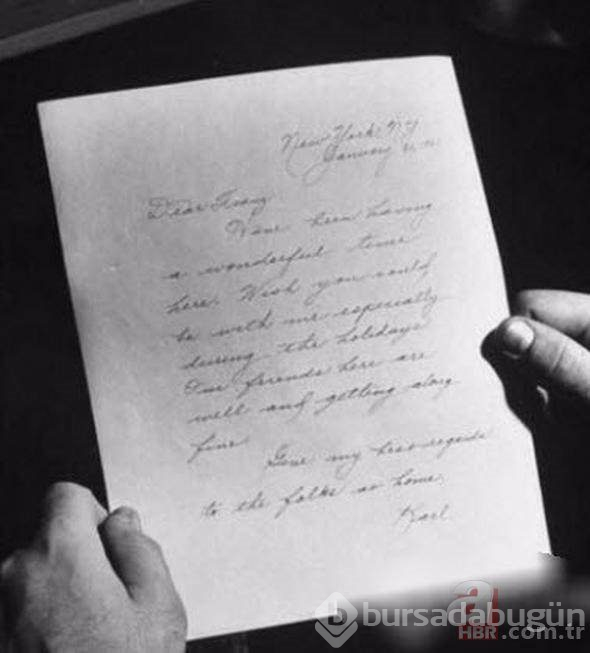 New York, N.Y.
January
Dear Franz
Have been having
a wonderful time
here. Wish you could
be with me especially
during the holidays
Our friends here are
well and getting along
fine.
Give my best regards
to the folks at home.
Karl
bursadabugün
a HBR .com.tr